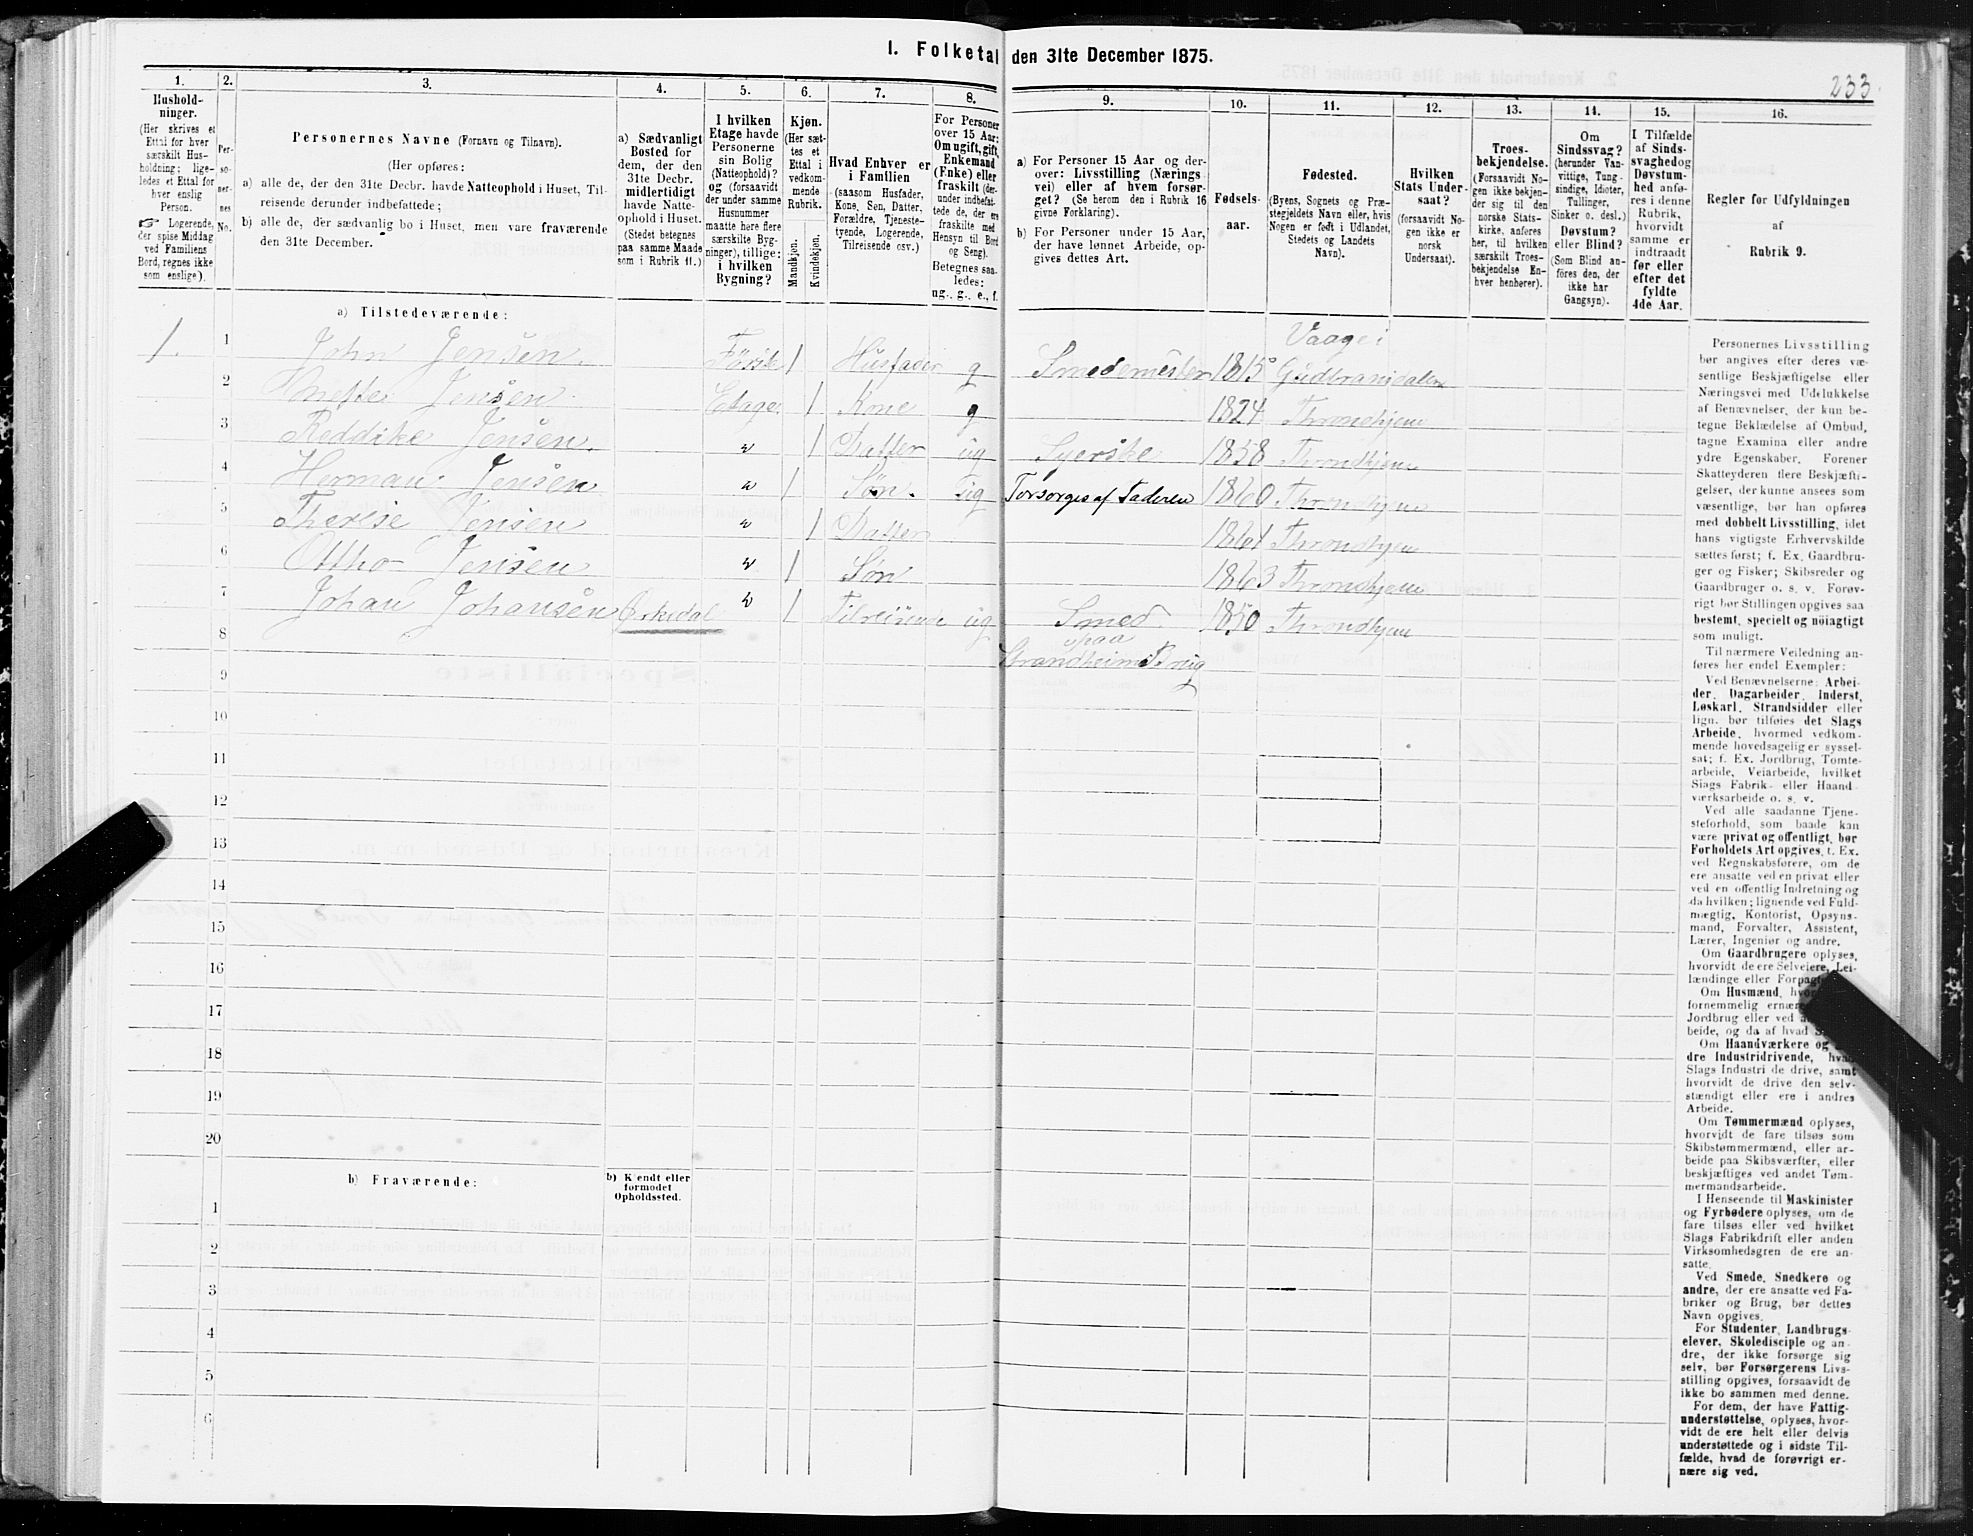 I. Folketal den 31te December 1875.
233.
1. 2. 3. 4. 5. 6. 7. 8. 9. 10. 11. 12. 13. 14. 15. 16.
Hushold-
ninger.
(Her skrives et
Ettal for hver
særskilt Hus-
holdning; lige-
ledes et Ettal for
hver enslig
Person.
☞ Logerende,
der spise Middag
ved Familiens
Bord, regnes ikke
som enslige).
Per-
so-
ner-
nes
No.
Personernes Navne (Fornavn og Tilnavn).
(Her opføres:
a) alle de, der den 31te Decbr. havde Natteophold i Huset, Til-
reisende derunder indbefattede;
b) alle de, der sædvanlig bo i Huset, men vare fraværende
den 31te December.
a) Sædvanligt
Bosted for
dem, der den
31te Decbr.
midlertidigt
havde Natte-
ophold i Huset.
(Stedet betegnes
paa samme Maade
som i Rubrik 11.)
I hvilken
Etage havde
Personerne
sin Bolig
(Natteophold)?
og (forsaavidt
der under samme
Husnummer
maatte høre flere
særskilte Byg-
ninger), tillige:
i hvilken
Bygning?
Kjøn.
(Her sæt-
tes et
Ettal i
vedkom-
mende
Rubrik.
Mandkjøn.
Kvindekjøn.
Hvad Enhver er
i Familien
(saasom Husfader,
Kone, Søn, Datter,
Forældre, Tjeneste-
tyende, Logerende,
Tilreisende osv.)
For Personer
over 15 Aar:
Om ugift, gift,
Enkemand
(Enke) eller
fraskilt (der-
under indbefat-
tede de, der ere
fraskilte med
Hensyn til Bord
og Seng).
Betegnes saa-
ledes:
ug., g., e., f.
a) For Personer 15 Aar og der-
over: Livsstilling (Nærings
vei) eller af hvem forsør-
get? (Se herom den i Rubrik 16
givne Forklaring).
b) For Personer under 15 Aar,
der have lønnet Arbeide, op-
gives dettes Art.
Fødsels-
aar.
Fødested.
(Byens, Sognets og Præ-
stegjeldets Navn eller, hvis
Nogen er født i Udlandet,
Stedets og Landets
Navn).
Hvilken
Stats Under-
saat?
(forsaavidt No-
gen ikke er
norsk
Undersaat).
Troes-
bekjendelse.
(Forsaavidt No-
gen ikke bekjen-
der sig til den
norske Stats-
kirke, anføres
her, til hvilken
særskilt Troes-
bekjendelse En-
hver henhører).
Om
Sindssvag?
(herunder Van-
vittige, Tung-
sindige, Idioter,
Tullinger,
Sinker o. desl.)
Døvstum?
eller Blind?
(Som Blind an-
føres den, der
ikke har
Gangsyn).
I Tilfælde
af Sinds-
svaghed og
Døvstum-
hed anfø-
res i denne
Rubrik,
hvorvidt
samme er
indtraadt
før eller
efter det
fyldte
4de Aar.
Regler for Udfyldningen
af
Rubrik 9.
a) Tilstedeværende:
Vaage i
1. 1 John Jensen. Første 1 Husfader g Smedemester 1815 Gudbransdalen
2 Mette Jensen Etage 1 Kone g 1824 Throndhjem
3 Reddike Jensen. " 1 Datter ug Syerske 1858 Throndhjem
4 Herman Jensen " 1 Søn. ug Forsørges af Faderen 1860 Throndhjem
5 Therese Jensen " 1 Datter 1861 Throndhjem
6 Ottho Jensen " 1 Søn 1863 Throndhjem
7 Johan Johansen Orkedal " 1 Tilreisende ug Smed 1850 Throndhjem
8 paa
Strandheims Brug
9
10
11
12
13
14
15
16
17
18
19
20
b) Fraværende:
b) Kjendt eller
formodet
Opholdssted.
1
2
3
4
5
6
Personernes Livsstilling
bør angives efter deres væ-
sentlige Beskjæftigelse eller
Næringsvei med Udelukkelse
af Benævnelser, der kun be-
tegne Beklædelse af Ombud,
tagne Examina eller andre
ydre Egenskaber. Forener
Skatteyderen flere Beskjæfti-
gelser, der kunne ansees som
væsentlige, bør han opføres
med dobbelt Livsstilling, idet
hans vigtigste Erhvervskilde
sættes først; f. Ex. Gaardbru-
ger og Fisker; Skibsreder og
Gaardbruger o. s. v. Forøv-
rigt bør Stillingen opgives saa
bestemt, specielt og nøiagtigt
som muligt.
Til nærmere Veiledning an-
føres her endel Exempler:
Ved Benævnelserne: Arbei-
der, Dagarbeider, Inderst,
Løskarl, Strandsidder eller
lign. bør tilføies det Slags
Arbeide, hvormed vedkom-
mende hovedsagelig er syssel-
sat; f. Ex. Jordbrug, Tomte-
arbeide, Veiarbeide, hvilket
Slags Fabrik- eller Haand-
værksarbeide o. s. v.
Ved alle saadanne Tjene-
steforhold, som baade kan
være privat og offentligt, bør
Forholdets Art opgives, f. Ex.
ved Regnskabsførere, om de
ere ansatte ved en privat eller
ved en offentlig Indretning og
da hvilken; lignende ved Fuld-
mægtig, Kontorist, Opsyns-
mand, Forvalter, Assistent,
Lærer, Ingeniør og andre.
Om Gaardbrugere oplyses,
hvorvidt de ere Selveiere, Lei-
lændinge eller
Om Husmænd,
fornemmelig
Jordbrug eller ved
beide, og da af hvad
Om Haandværkere og
dre Industridrivende,
Slags Industri de drive, samt
hvorvidt de drive den selv-
stændigt eller ere i andres
Arbeide.
Om Tømmermænd oplyses,
hvorvidt de fare tilsøs som
Skibstømmermænd, eller ar-
beide paa Skibsværfter, eller
beskjæftiges ved andet Tøm-
mermandsarbeide.
I Henseende til Maskinister
og Fyrbødere oplyses, om de
fare tilsøs eller ved hvilket
Slags Fabrikdrift eller anden
Virksomhedsgren de ere an-
satte.
Ved Smede, Snedkere og
andre, der ere ansatte ved Fa-
briker og Brug, bør dettes
Navn opgives.
For Studenter, Landbrugs-
elever, Skoledisciple og an-
dre, der ikke forsørge sig
selv, bør Forsørgerens Livs-
stilling opgives, forsaavidt de
ikke bo sammen med denne.
For dem, der have Fattig-
understøttelse, oplyses, hvor-
vidt de ere helt eller delvis
understøttede og i sidste Til-
fælde, hvad de forøvrigt er-
nære sig ved.